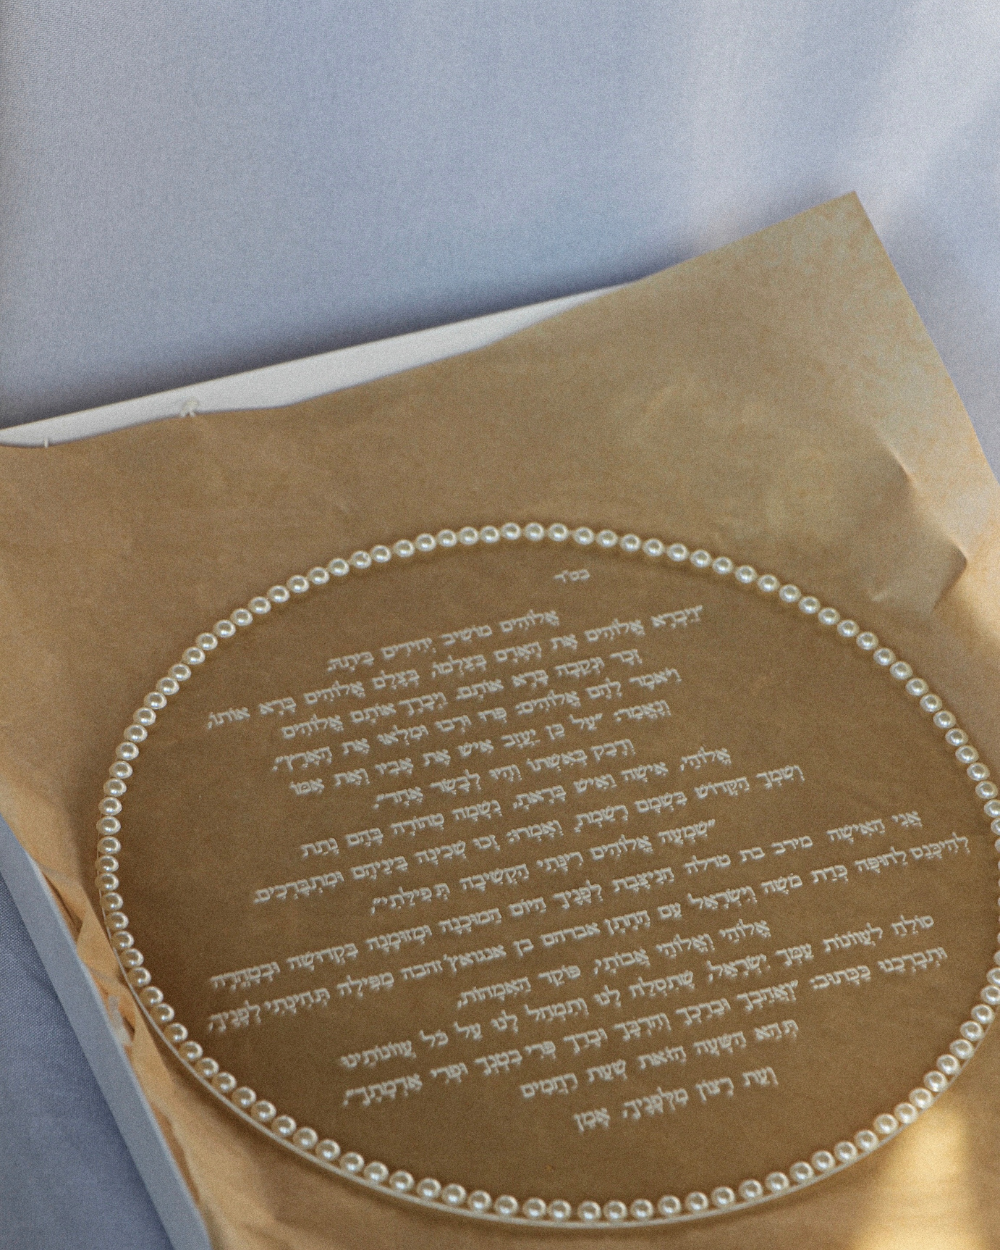 בס"ד
אֱלוֹהִים מוֹשִׁיב יְחִידִים בַּיְתָה.
"וַיִּבְרָא אֱלוֹהִים אֶת הָאָדָם בְּצַלְמוֹ, בְּצֶלֶם אֱלוֹהִים בָּרָא אוֹתוֹ,
זָכָר וּנְקֵבָה בָּרָא אוֹתָם. וַיְבָרֶךְ אוֹתָם אֱלוֹהִים
וַיֹּאמֶר לָהֶם אֱלוֹהִים: פְּרוּ וּרְבוּ וּמִלְאוּ אֶת הָאָרֶץ",
וְנֶאֱמַר: "עַל כֵּן יַעֲזֹב אִישׁ אֶת אָבִיו וְאֶת אִמּוֹ
וְדָבַק בְּאִשְׁתּוֹ וְהָיוּ לְבָשָׂר אֶחָד".
אֱלוֹהַי, אִישָּׁה וְאִישׁ בָּרָאתָ, נְשָׁמָה טְהוֹרָה בָּהֶם נָתַתָּ
וְשִׁמְךָ הַקָּדוֹשׁ בִּשְׁמָם רָשַׁמְתָּ, וְאָמַרְתָּ: זָכוּ שְׁכִינָה בֵּינֵיהֶם וּמִתְבָּרְכִים.
"שִׁמְעָה אֱלוֹהִים רִינָּתִי הַקְשִׁיבָה תְּפִילָּתִי",
אֲנִי הָאִישָּׁה מירב בת הַנִּיצֶּבֶת לְפָנֶיךָ הַיּוֹם הַמּוּכָנָה וּמְזוּמָּנָה בִּקְדוּשָּׁה וּבְטָהֳרָה
לְהִיכָּנֵס לַחוּפָּה כְּדַת מֹשֶׁה וְיִשְׂרָאֵל עִם הֶחָתָן אברהם בן זהבה מַפִּילָה תְּחִינָּתִי לְפָנֶיךָ,
אֱלוֹהַי וֶאֱלוֹהֵי אֲבוֹתַי, פּוֹקֵד הָאִמָּהוֹת,
סוֹלֵחַ לַעֲווֹנוֹת עַמְּךָ יִשְׂרָאֵל, שֶׁתִּסְלַח לָנוּ וְתִמְחַל לָנוּ עַל כָּל עֲווֹנוֹתֵינוּ
וּתְבָרְכֵנוּ כַּכָּתוּב: "וַאֲהֵבְךָ וּבֵרַכְךָ וְהִרְבֶּךָ וּבֵרַךְ פְּרִי בִטְנְךָ וּפְרִי אַדְמָתֶךָ",
תְּהֵא הַשָּׁעָה הַזֹּאת שְׁעַת רַחֲמִים
וְעֵת רָצוֹן מִלְּפָנֶיךָ, אָמֵן